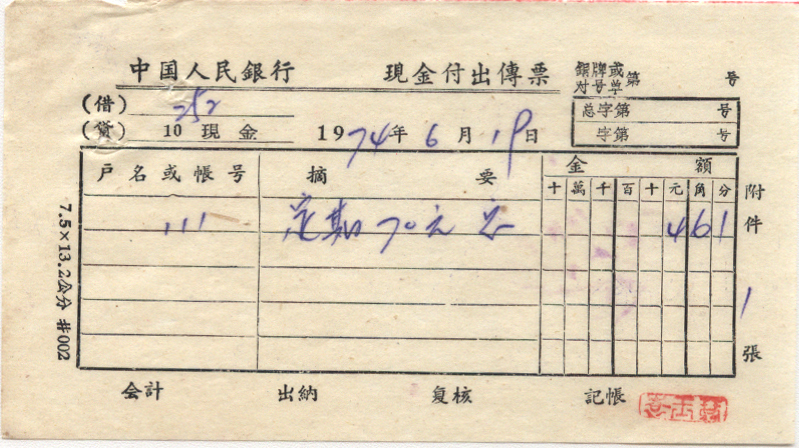 中国人民銀行 現金付出傳票 銅牌或对号单第 号
(借) 252 总字第 号
(貸) 10 現金 1974年6月19日 字第 号
戶名或帳号 摘要 金額
十萬千百十元角分
111 定期70元 461
附件 1 張
7.5×13.2公分 #002
会計 出納 复核 記帳